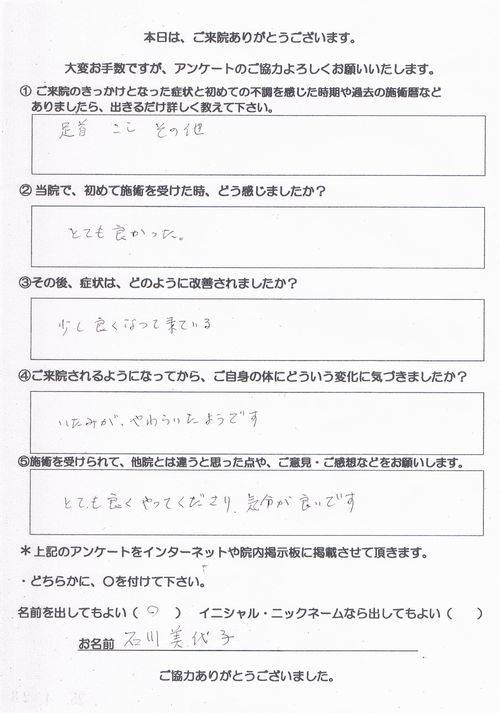 本日は、ご来院ありがとうございます。
大変お手数ですが、アンケートのご協力よろしくお願いいたします。
① ご来院のきっかけとなった症状と初めての不調を感じた時期や過去の施術暦など
ありましたら、出きるだけ詳しく教えて下さい。
足首 こし その他
② 当院で、初めて施術を受けた時、どう感じましたか？
とても良かった。
③その後、症状は、どのように改善されましたか？
少し良くなって来ている
④ご来院されるようになってから、ご自身の体にどういう変化に気づきましたか？
いたみが、やわらいたようです
⑤施術を受けられて、他院とは違うと思った点や、ご意見・ご感想などをお願いします。
とても良くやってくださり、気分が良いです
＊上記のアンケートをインターネットや院内掲示板に掲載させて頂きます。
・どちらかに、〇を付けて下さい。
名前を出してもよい（ 〇 ） イニシャル・ニックネームなら出してもよい（ ）
お名前 石川 美代子
ご協力ありがとうございました。